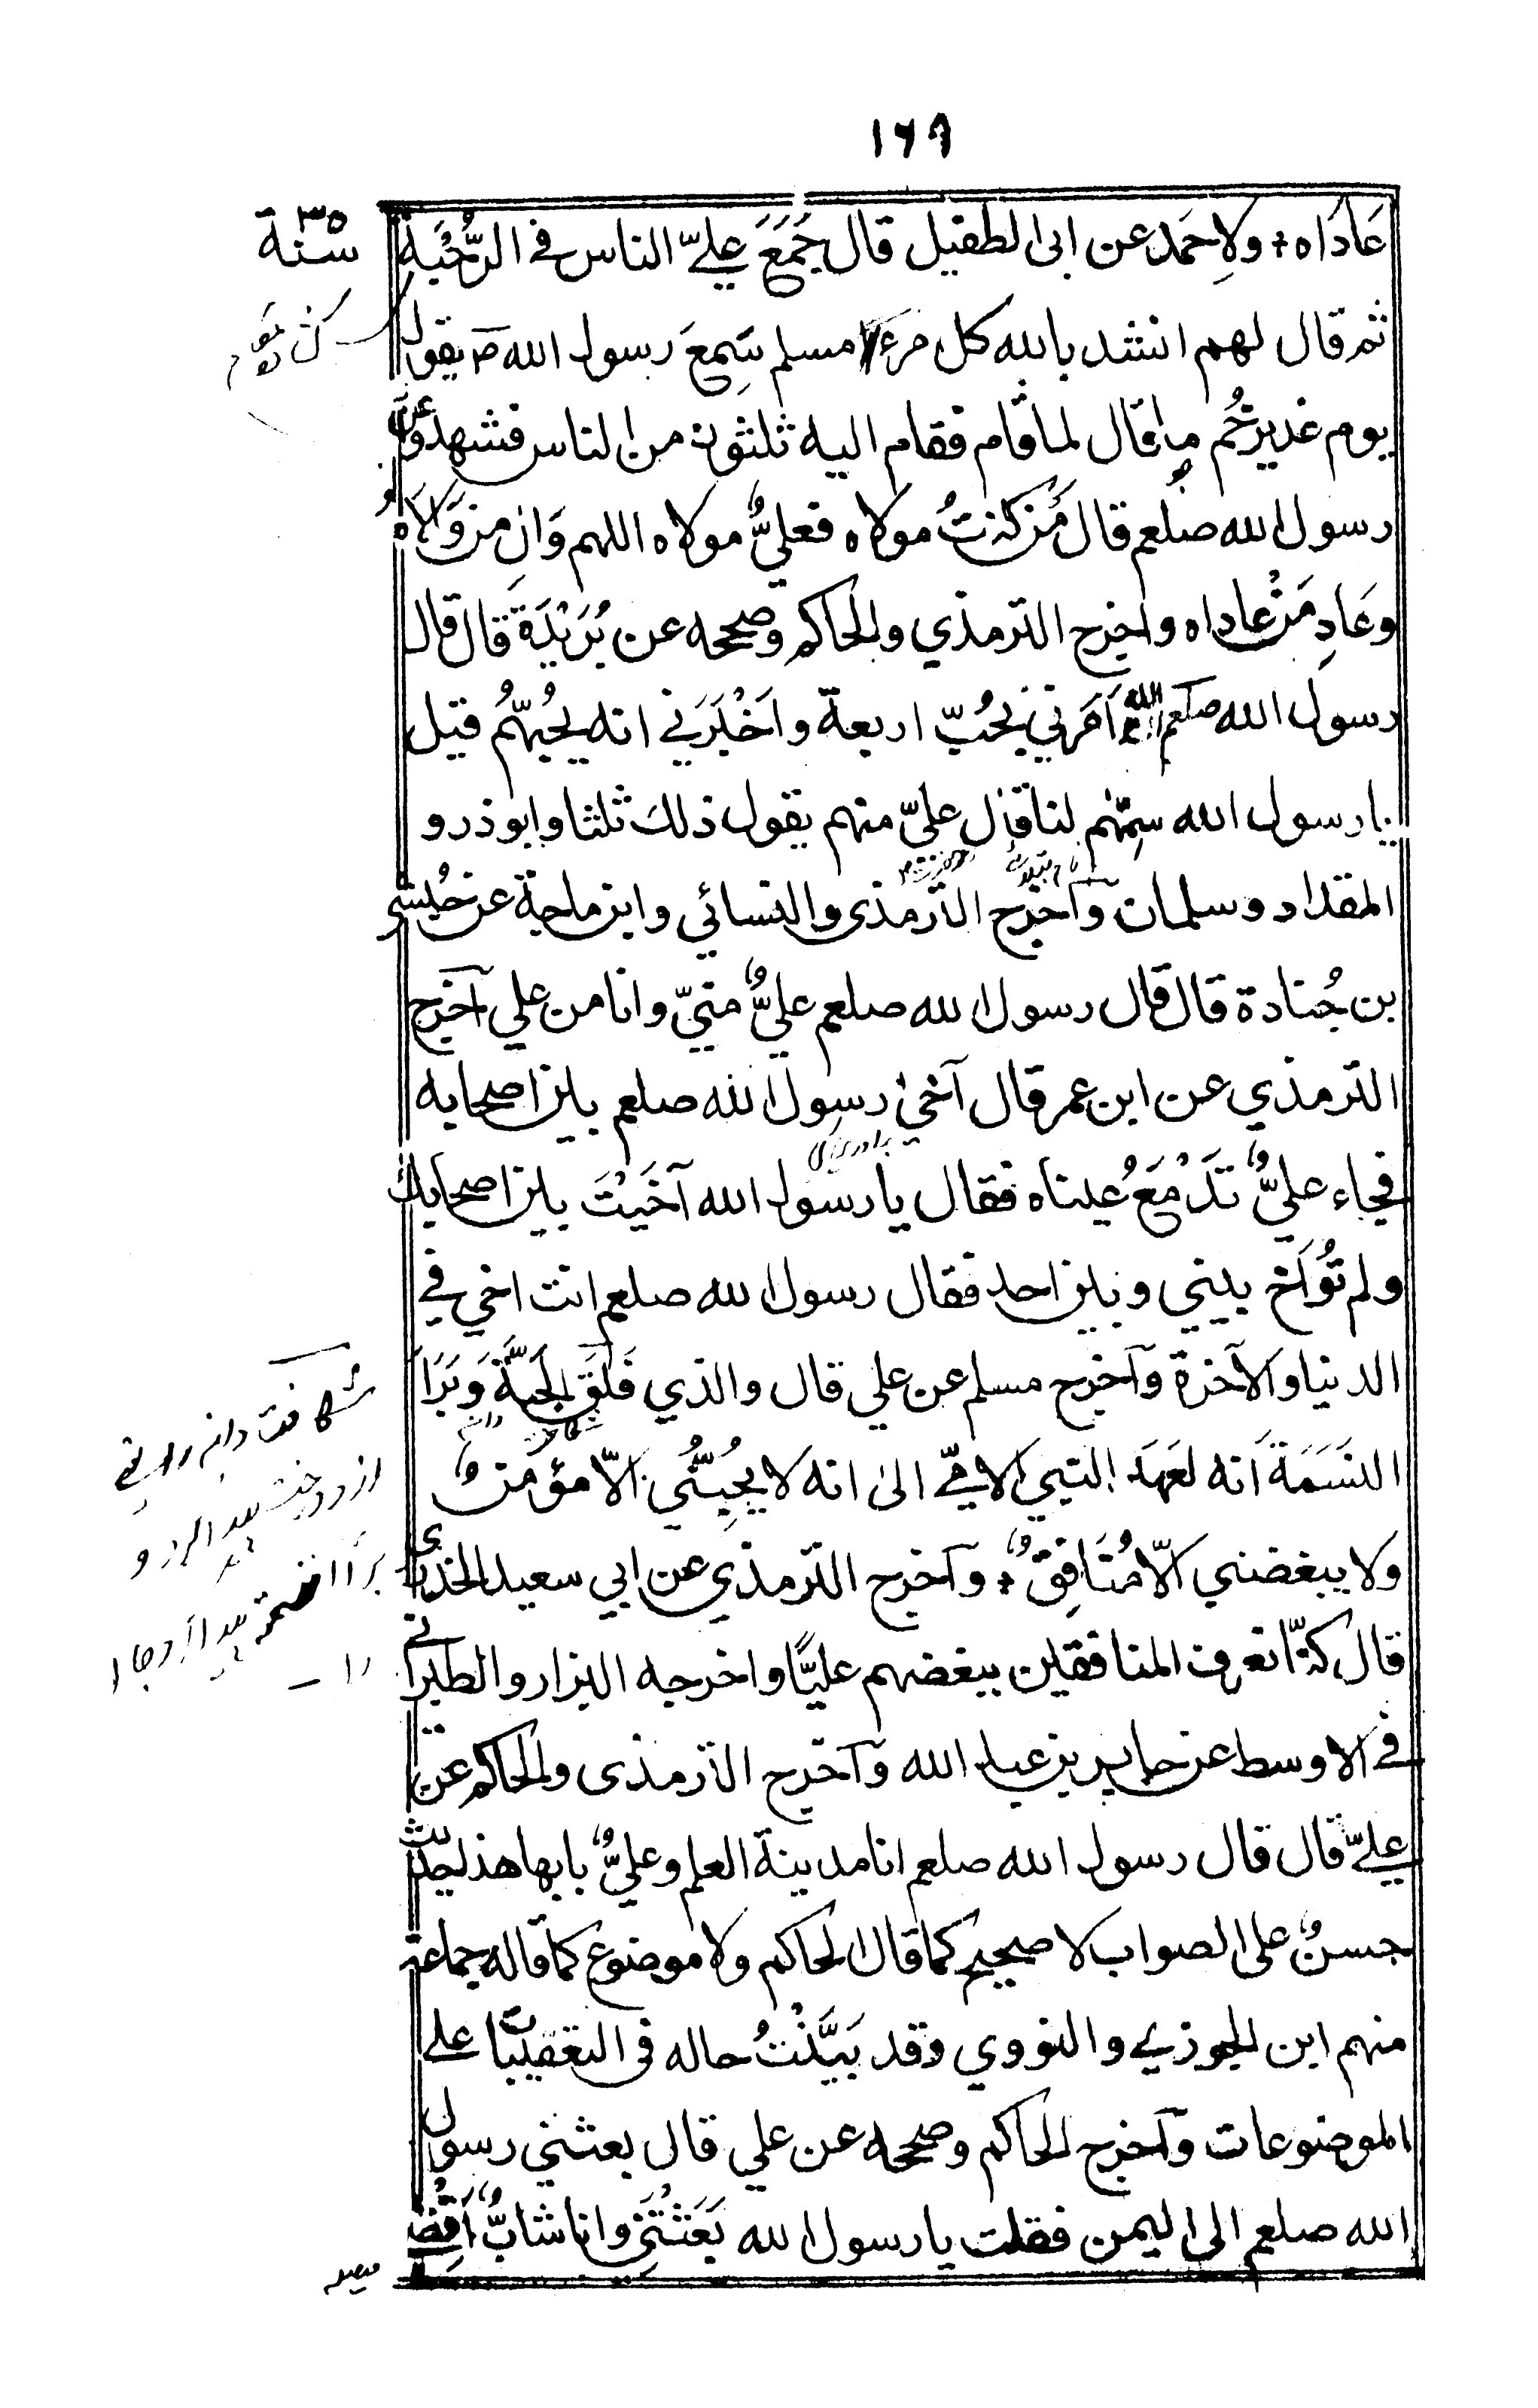 ١٦٩
سنة ٣٥
عَادَاه + ولاِحَمد عن ابى الطفيل قال جَمَعَ عليّ الناس فى الرُّحْبَةِ
ثم قال لهم انشد بالله كل امرء مسلم سَمِعَ رسول الله ص يقول
يوم غدير خُم ما قال لما قام فقام اليه ثلثون من الناس فشهدوا ان
رسول الله صلعم قال مَن كنتُ مولاه فعليٌّ مولاه اللهم وَالِ من وَالَاهُ
وعَادِ مَنْ عاداه واخرج الترمذي والحاكم وصححه عن بُرَيْدَةَ قال قال
رسول الله صلعم ان الله اَمَرني بحُبّ اربعة واَخْبَرَني انه يُحِبّهُم قيل
يا رسول الله سَمِّهم لنا قال عليّ منهم يقول ذلك ثلثا وابو ذر و
المقداد وسلمان وآخرج الترمذى والنسائي وابن ماجة عن حُبشى
بن جُنادة قال قال رسول الله صلعم عليٌّ منيّ وانا من علي آخرج
الترمذي عن ابن عمر قال آخى رسول الله صلعم بين اصحابه
فجاء عليٌّ تَدْمَعُ عيناه فقال يا رسول الله آخَيْتَ بين اصحابك
ولم تُوَاخ بيني وبين احد فقال رسول الله صلعم انت اخي في
الدنيا والآخرة وآخرج مسلم عن علي قال والذي فَلَقَ الحَبَّةَ وَبَرَاَ
النَسَمَةَ اَنه لعَهدَ النبي الامّي الىّ انه لا يُحِبُّني الّا مؤمنٌ
ولا يبغضني الّا مُنَافِقٌ + وآخرج الترمذي عن ابي سعيد الخدرى
قال كنّا نعرف المنافقين ببغضهم عليًّا واخرجه البزار والطبرانى
فى الاوسط عن جابر بن عبد الله وآخرج الترمذى والحاكم عن
عليّ قال قال رسول الله صلعم انا مدينة العلم وعليٌّ بابها هذا حديث
حسنٌ على الصواب لا صحيح كما قال الحاكم ولا موضوع كما قاله جماعة
منهم ابن الجوزي والنووي وقد بَيَّنْتُ حاله فى التعقيبات على
الموضوعات وآخرج الحاكم وصححه عن علي قال بعثني رسول
الله صلعم الى اليمن فقلت يا رسول الله بَعَثْتَنِي وانا شابٌّ اَقْضِي